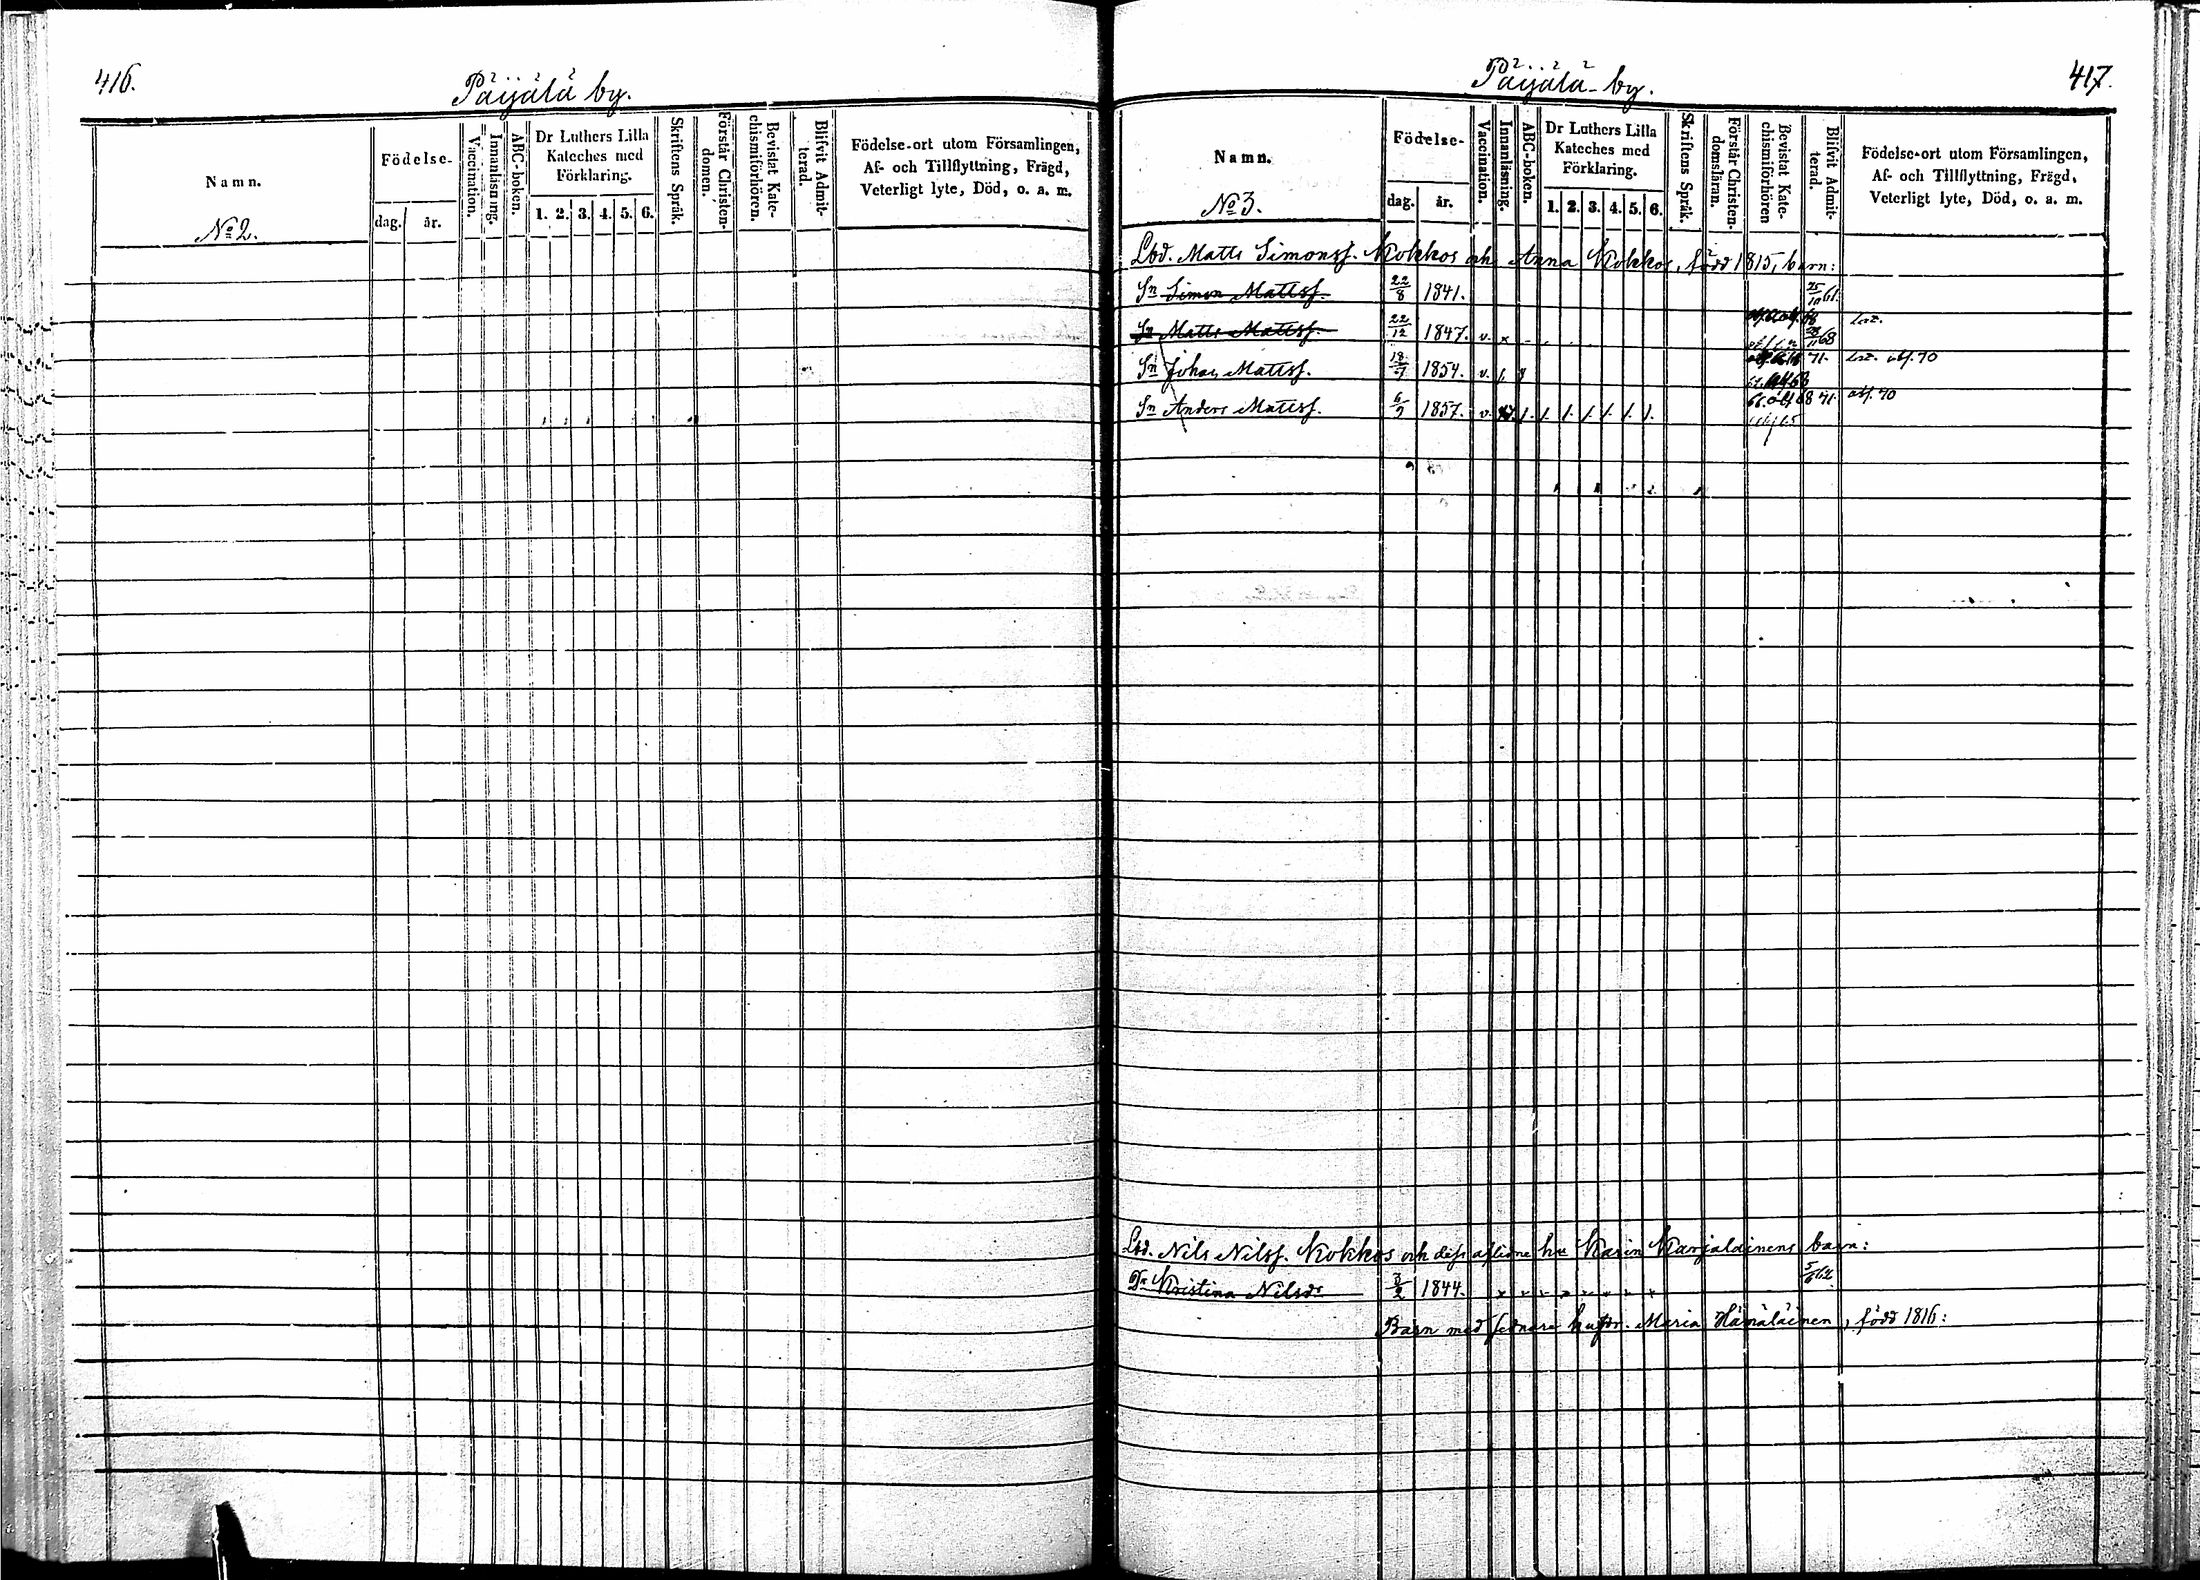 416.
Päijälä by.
Namn.
Födelse-
dag. år.
Vaccination.
Innanläsning.
ABC-boken.
Dr Luthers Lilla
Kateches med
Förklaring.
1. 2. 3. 4. 5. 6.
Skriftens Språk.
Förstår Christen-
domen.
Bevistat Kate-
chismiförhören.
Blifvit Admit-
terad.
Födelse-ort utom Församlingen,
Af- och Tillflyttning, Frägd,
Veterligt lyte, Död, o. a. m.
No 2.
Päijälä by.
417.
Namn.
Födelse-
dag. år.
Vaccination.
Innanläsning.
ABC-boken.
Dr Luthers Lilla
Kateches med
Förklaring.
1. 2. 3. 4. 5. 6.
Skriftens Språk.
Förstår Christen-
domsläran.
Bevistat Kate-
chismiförhören
Blifvit Admit-
terad.
Födelse-ort utom Församlingen,
Af- och Tillflyttning, Frägd,
Veterligt lyte, Död, o. a. m.
No 3.
Lbd. Matts Simonss. Kokkos och Anna Kokkos, född 1815, barn:
Sn Simon Mattss. 22/8 1841. 25/10 61.
Sn Matts Mattss. 22/12 1847. v. x 68
Sn Johan Mattss. 18/7 1854. v. 71. abs. 70
Sn Anders Mattss. 6/9 1857. v. 68 71. abs. 70
Lbd. Nils Nilss. Kokkos och dess aflidne hu Karin Karjalainens barn:
Dr Kristina Nilsdr 3/2 1844. x x x x x x x x 62.
Barn med sednare hustr. Maria Hämäläinen, född 1816: